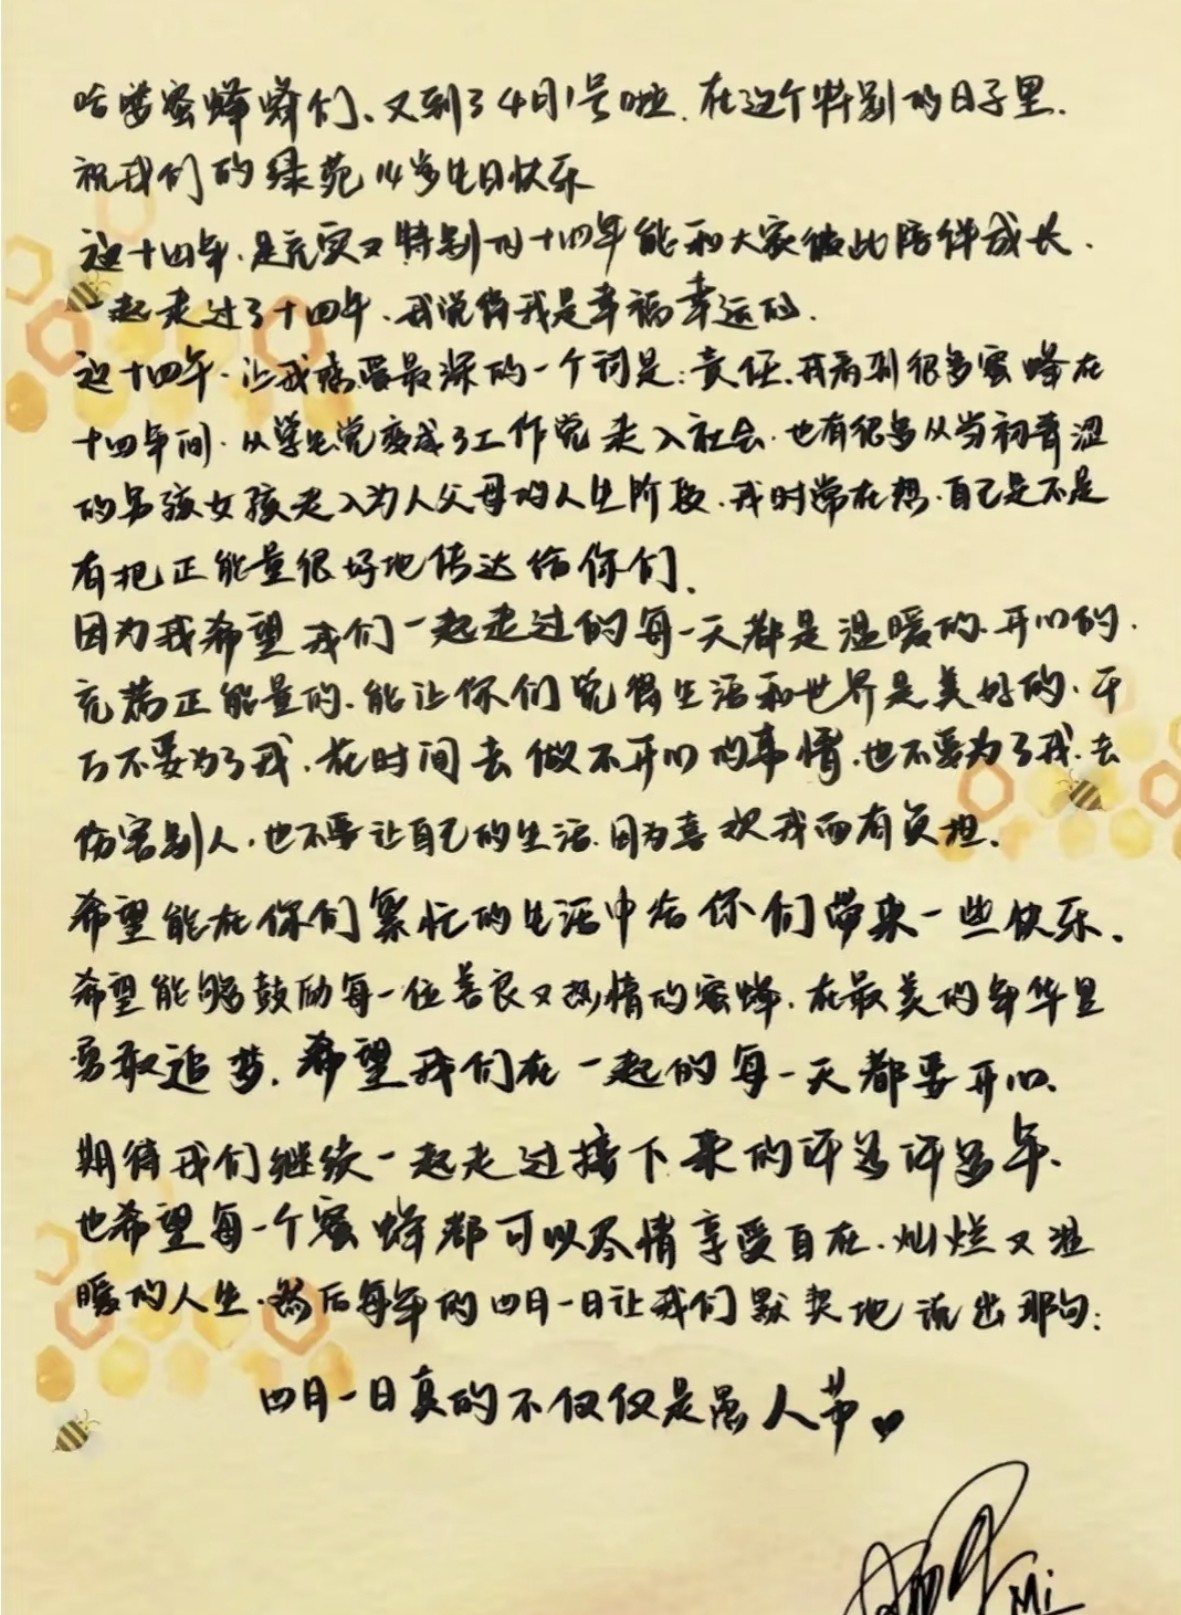 哈喽蜜蜂蜂们、又到了4月1号啦.在这个特别的日子里.
祝我们的绿苑14岁生日快乐
这十四年.是充实又特别的十四年能和大家彼此陪伴成长.
一起走过了十四年.我觉得我是幸福幸运的.
这十四年.让我感受最深的一个词是:责任.我看到很多蜜蜂在
十四年间.从学生党变成了工作党走入社会.也有很多从当初青涩
的男孩女孩走入为人父母的人生阶段.我时常在想.自己是不是
有把正能量很好地传达给你们.
因为我希望我们一起走过的每一天都是温暖的.开心的.
充满正能量的.能让你们觉得生活和世界是美好的.千
万不要为了我.花时间去做不开心的事情.也不要为了我.去
伤害别人.也不要让自己的生活.因为喜欢我而有负担.
希望能在你们繁忙的生活中给你们带来一些快乐.
希望能够鼓励每一位善良又热情的蜜蜂.在最美的年华里
勇敢追梦.希望我们在一起的每一天都要开心.
期待我们继续一起走过接下来的许多许多年.
也希望每一个蜜蜂都可以尽情享受自在.灿烂又温
暖的人生.然后每年的四月一日让我们默契地说出那句:
四月一日真的不仅仅是愚人节♥
Mi